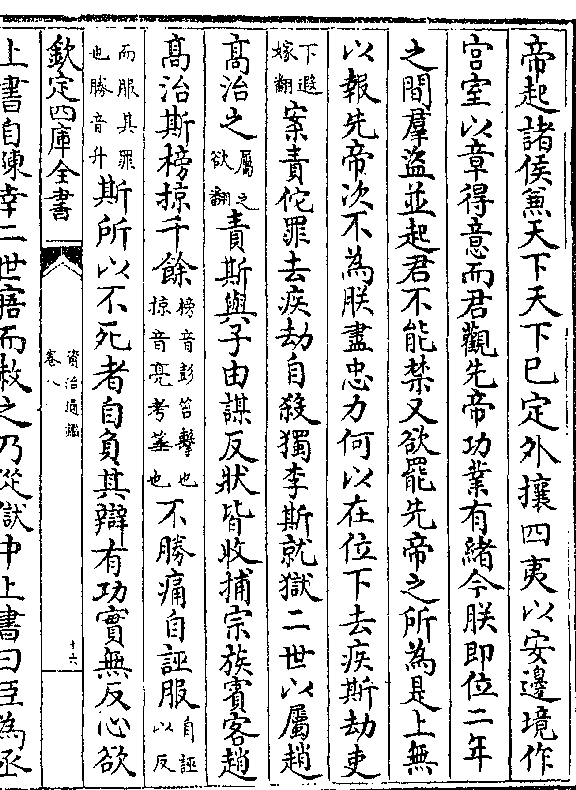 帝起諸侯兼天下天下已定外攘四夷以安邊境作
宫室以章得意而君觀先帝功業有緒今朕即位二年
之間羣盜並起君不能禁又欲罷先帝之所為是上無
以報先帝次不為朕盡忠力何以在位下去疾斯劫吏
下遐
嫁翻
案責佗罪去疾劫自殺獨李斯就獄二世以屬趙
高治之
屬之
欲翻
責斯與子由謀反狀皆收捕宗族賓客趙
高治斯榜掠千餘
榜音彭笞擊也
掠音亮考箠也
不勝痛自誣服
自誣
以反
而服其罪
也勝音升
斯所以不死者自負其辯有功實無反心欲
欽定四庫全書
資治通鑑
卷八
十六
上書自陳幸二世寤而赦之乃從獄中上書曰臣為丞